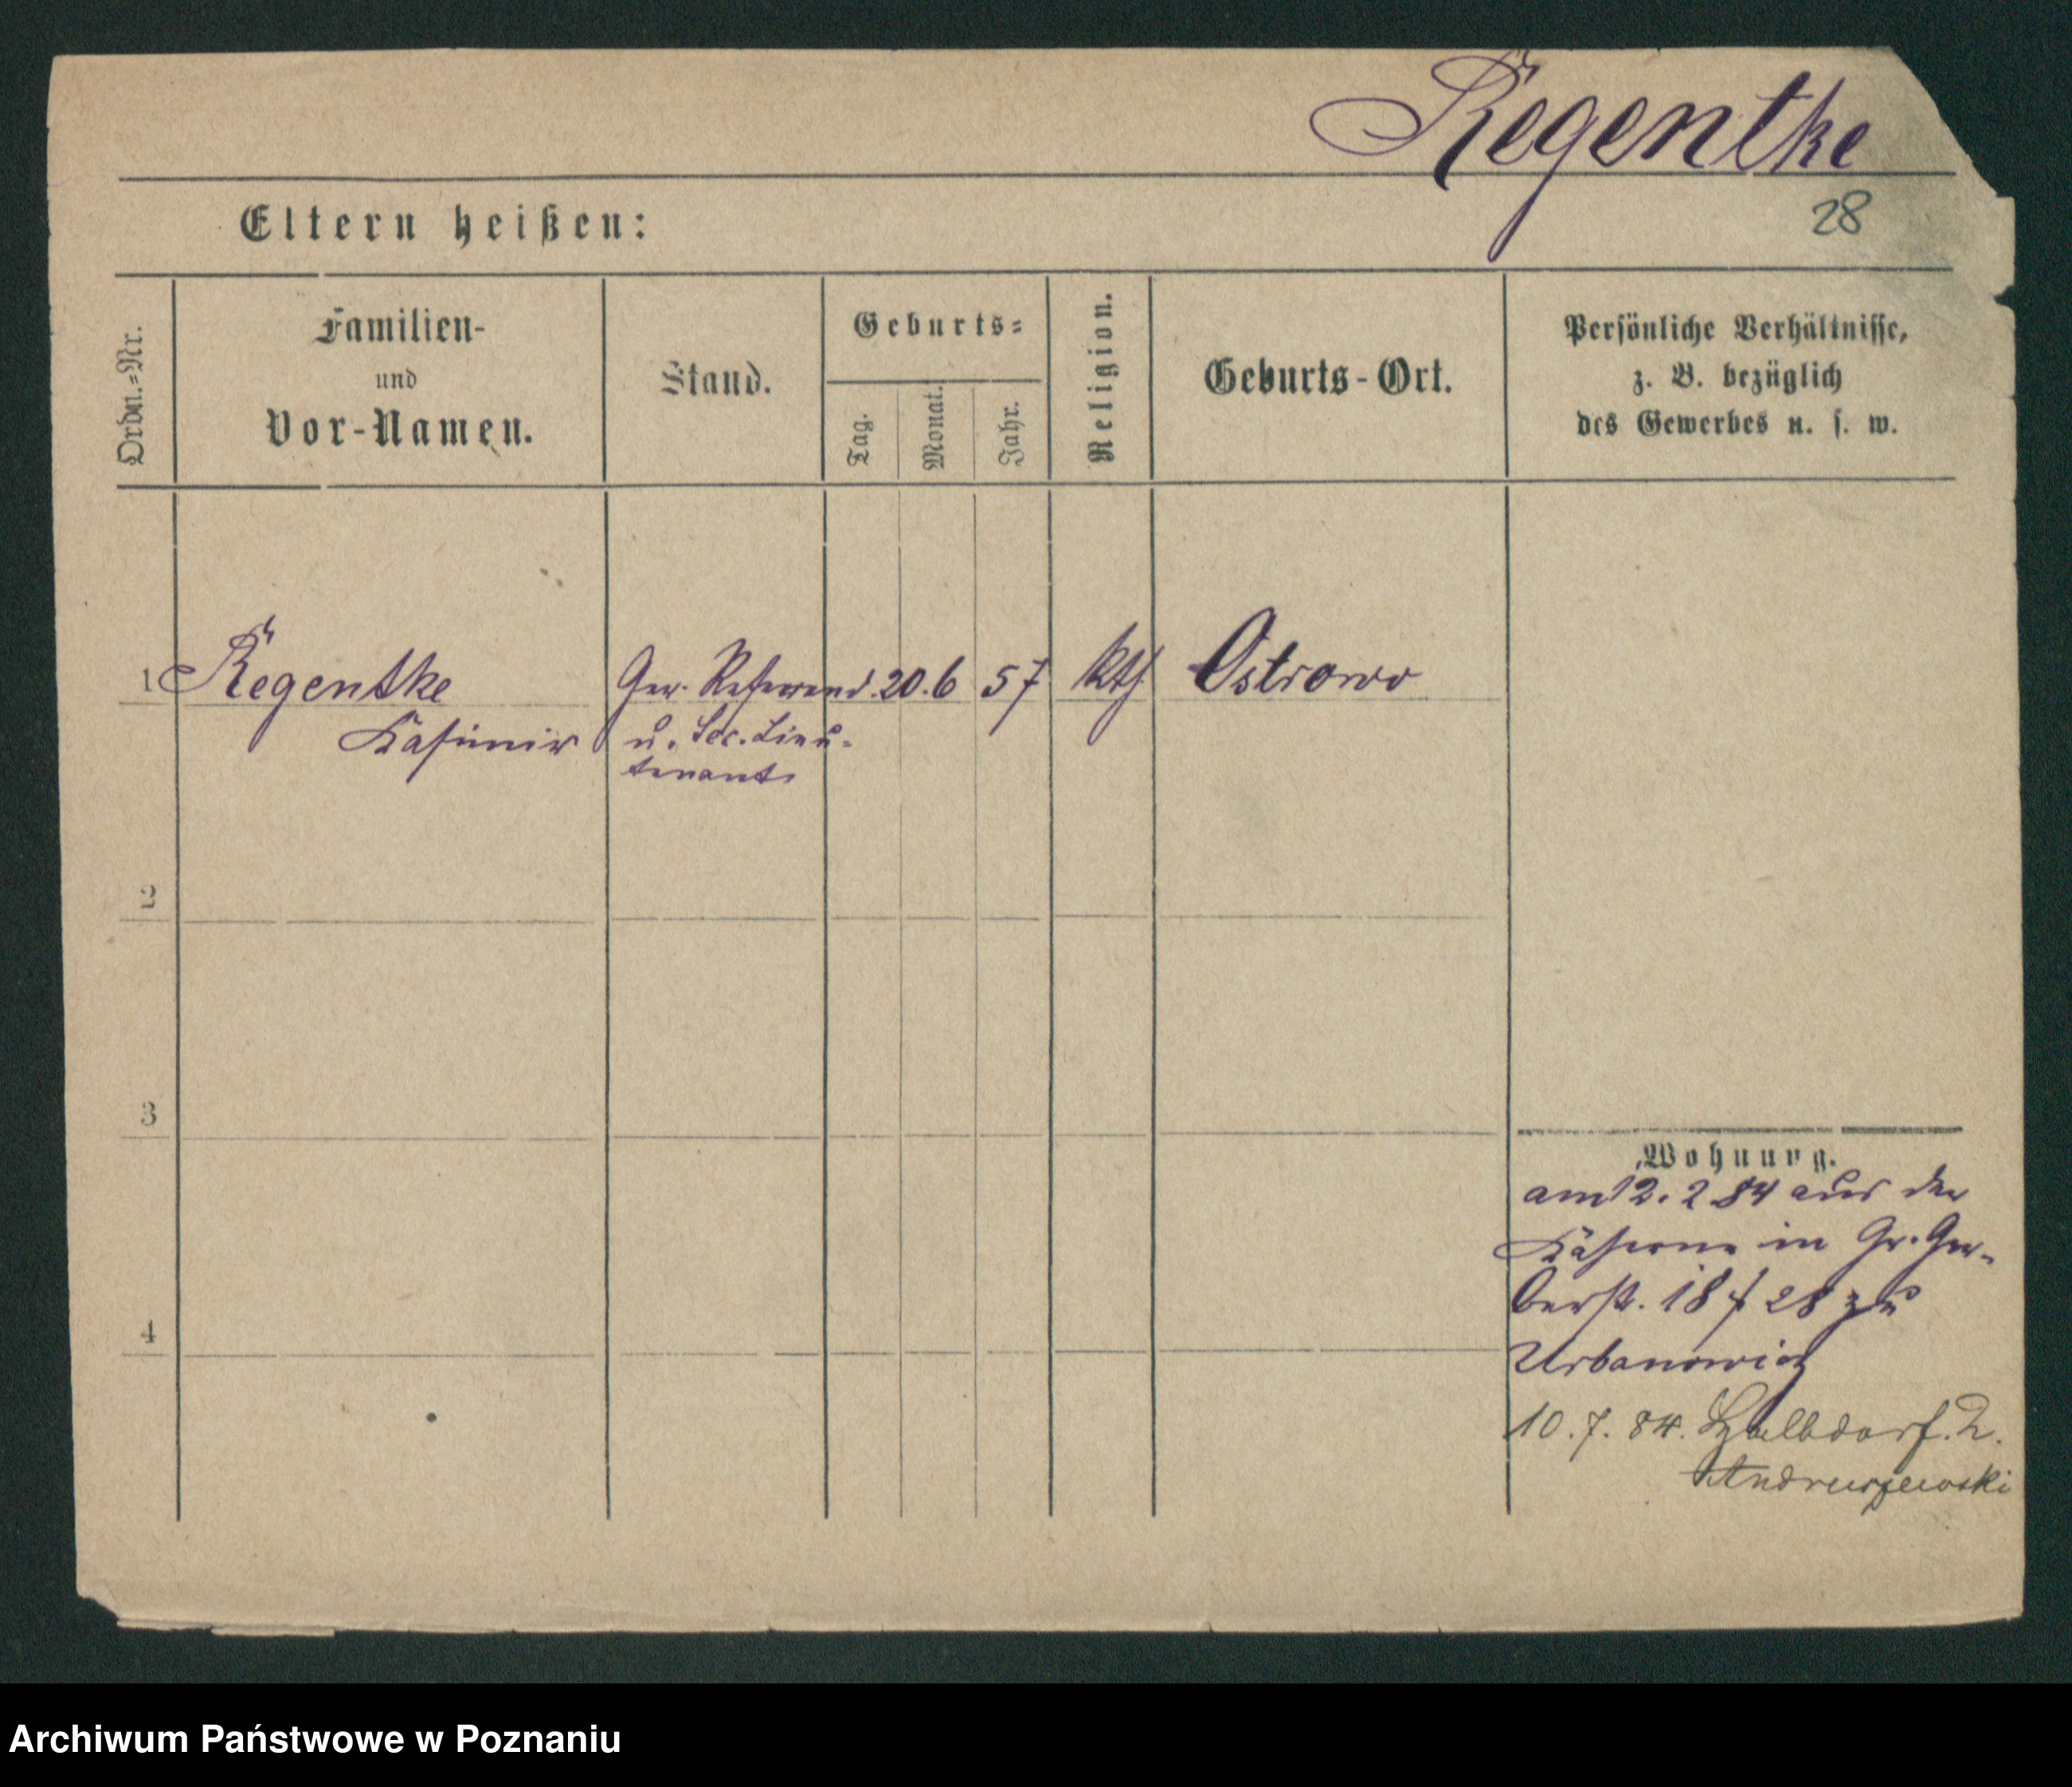 Regentke
28
Eltern heißen:
Ordn.=Nr.
Familien-
und
Vor-Namen.
Stand.
Geburts=
Tag.
Monat.
Jahr.
Religion.
Geburts-Ort.
Persönliche Verhältnisse,
z. B. bezüglich
des Gewerbes u. s. w.
1 Regentke Ger. Referend. 20. 6 57 kth Ostrowo
Kasimir u. Sec. Lieu-
tenant
2
3
4
Wohnung.
am 12. 2 84 aus der
Kaserne in Gr. Ger-
berst. 18 f 28 zu
Urbanowicz
10. 7. 84. Halbdorf. 2.
Andruszewski
Archiwum Państwowe w Poznaniu